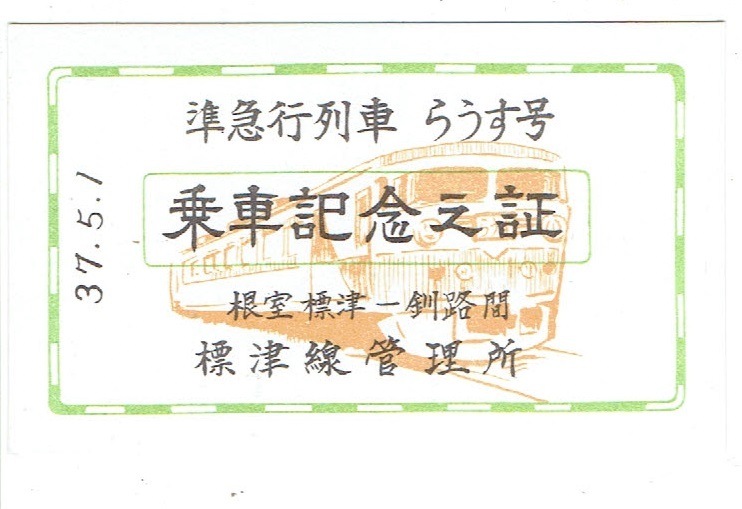 準急行列車 らうす号
乗車記念之証
根室標津－釧路間
標津線管理所
37.5.1